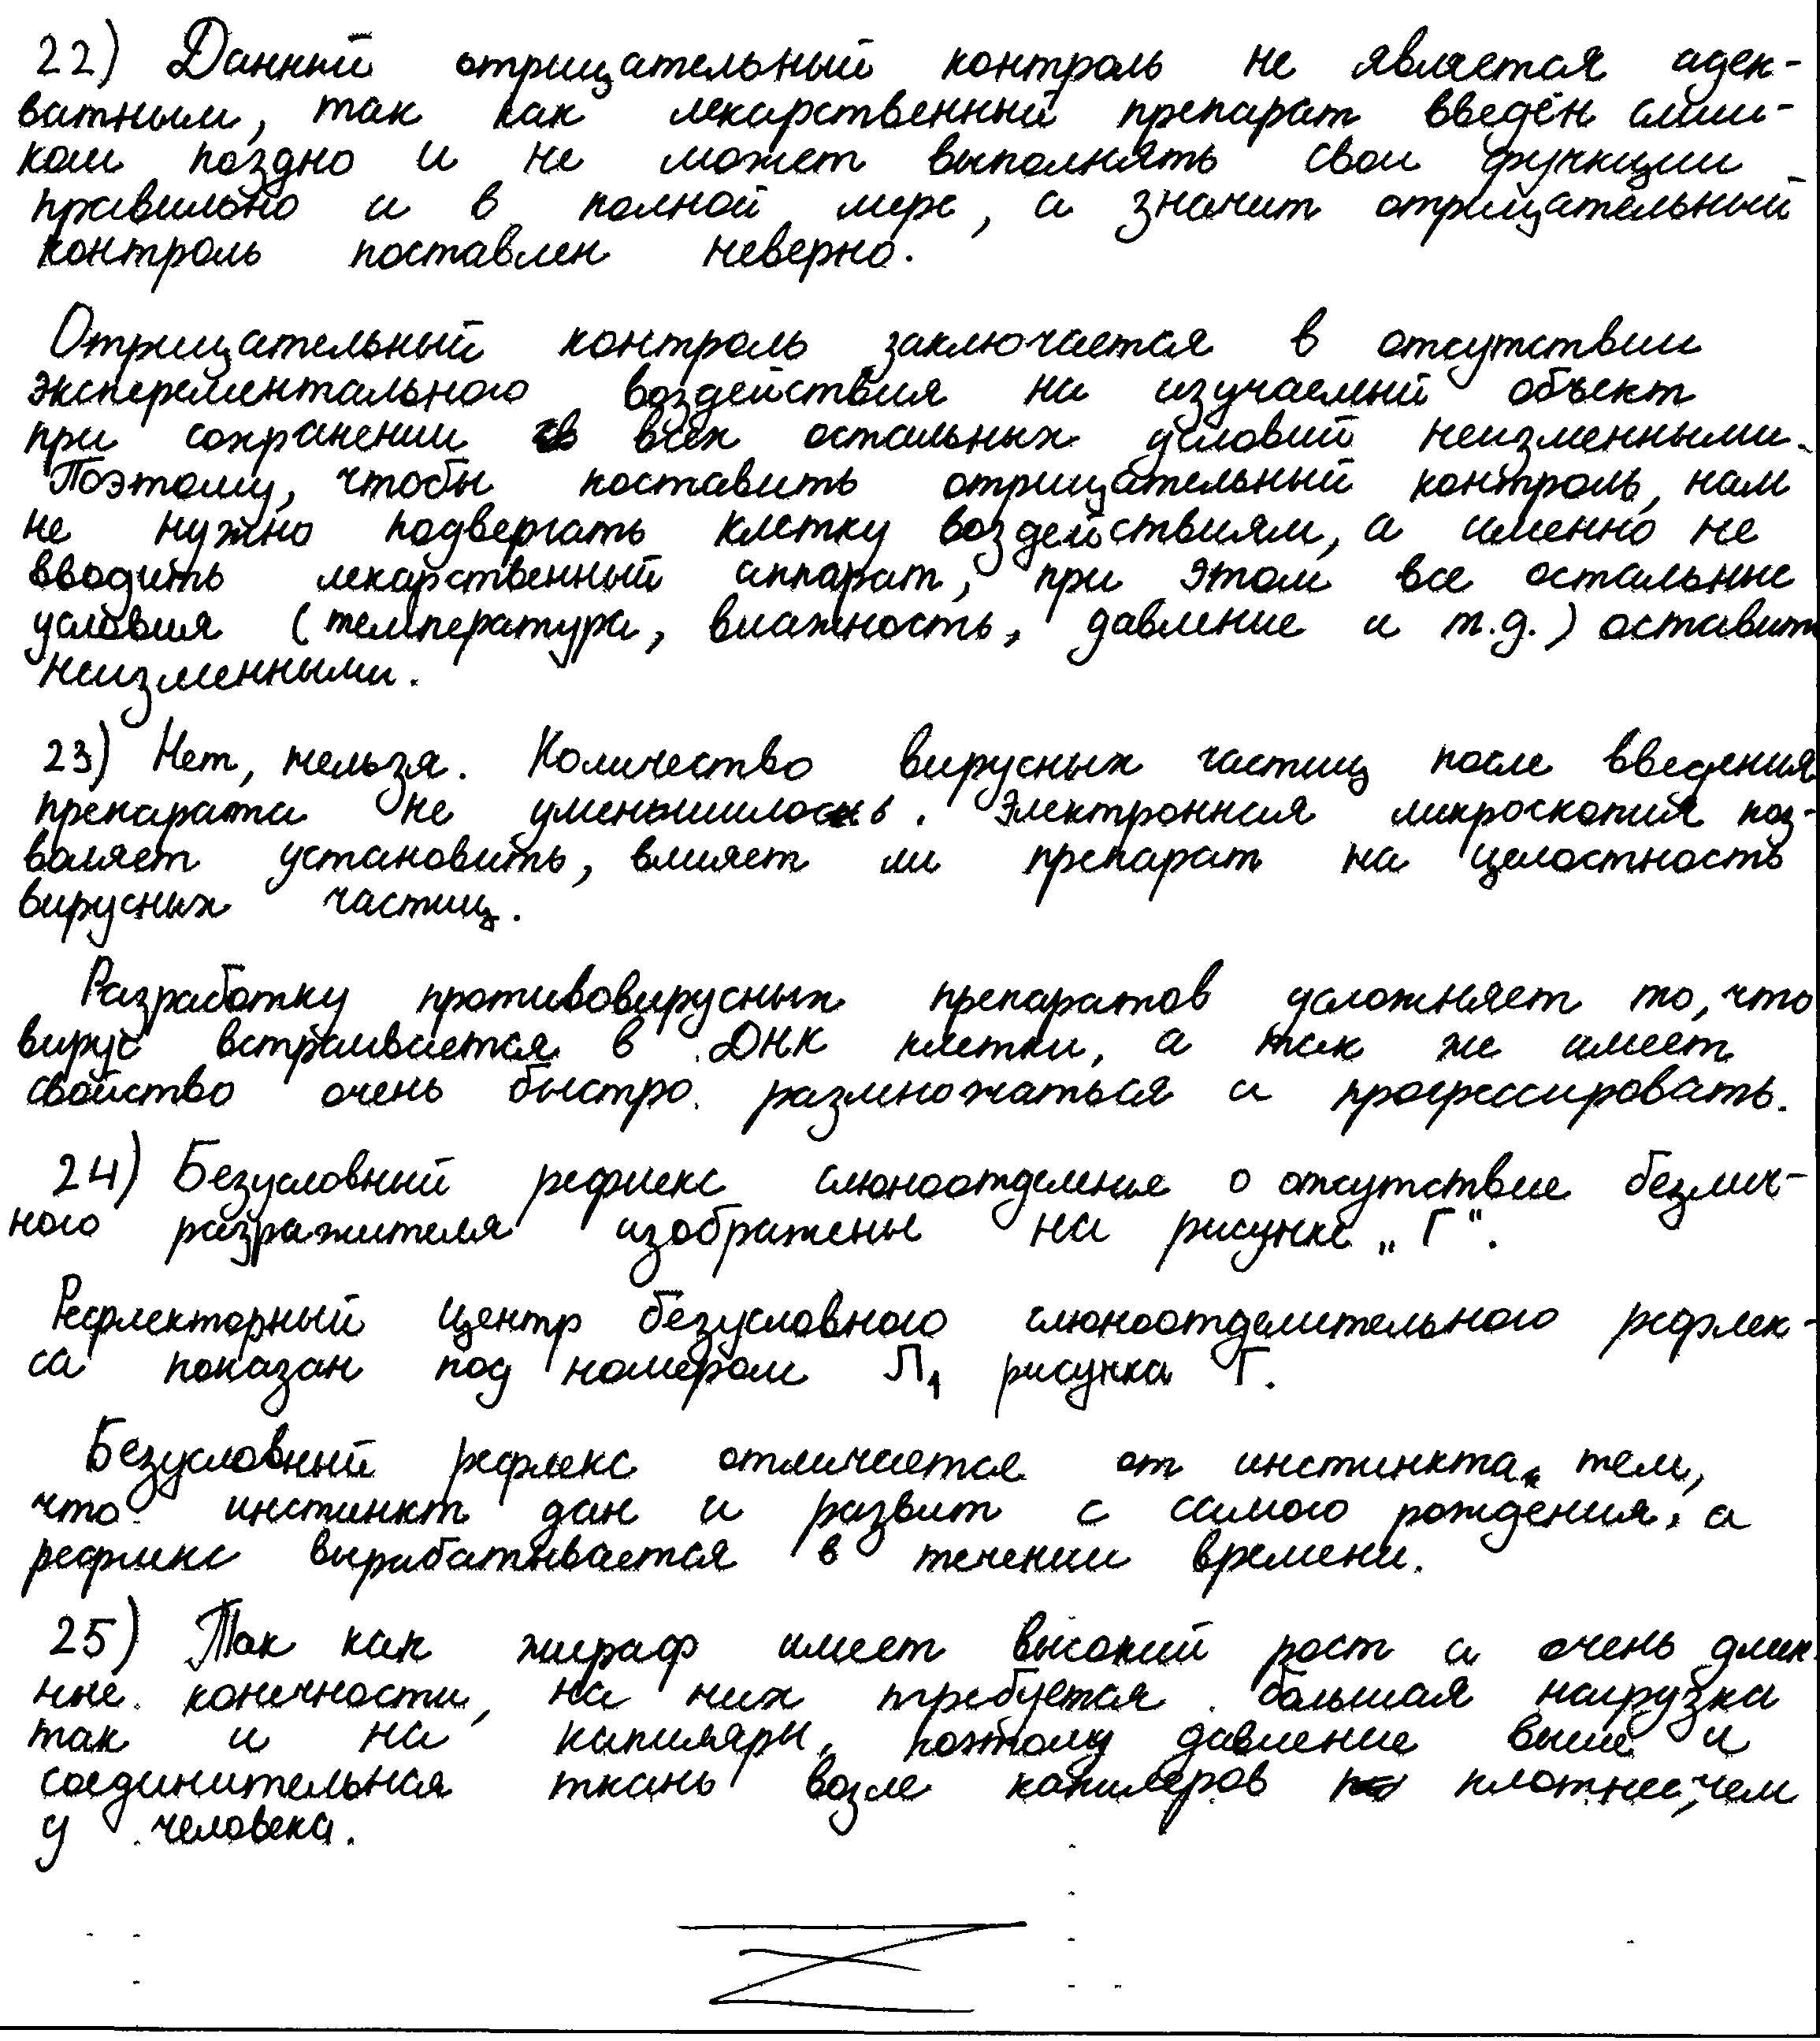 22) Данный отрицательный контроль не является адек-
ватным, так как лекарственный препарат введён слиш-
ком поздно и не может выполнять свои функции
правильно и в полной мере, а значит отрицательный
контроль поставлен неверно.
Отрицательный контроль заключается в отсутствии
эксперементального воздействия на изучаемый объект
при сохранении всех остальных условий неизменными.
Поэтому, чтобы поставить отрицательный контроль, нам
не нужно подвергать клетку воздействиям, а именно не
вводить лекарственный аппарат, при этом все остальные
условия (температура, влажность, давление и т.д.) оставить
неизменными.
23) Нет, нельзя. Количество вирусных частиц после введения
препарата не уменьшилось. Электронная микроскопия поз-
воляет установить, влияет ли препарат на целостность
вирусных частиц.
Разработку противовирусных препаратов усложняет то, что
вирус встраивается в ДНК клетки, а так же имеет
свойство очень быстро размножаться и прогрессировать.
24) Безусловный рефлекс слюноотделенье о отсутствие безлич-
ного разражителя изображены на рисунке „Г".
Рефлекторный центр безусловного слюноотделительного рефлек-
са показан под номером Л1 рисунка Г.
Безусловный рефлекс отличается от инстинкта тем,
что инстинкт дан и развит с самого рождения, а
рефлекс вырабатывается в течении времени.
25) Так как жираф имеет высокий рост и очень длин-
ные конечности, на них требуется большая нагрузка
так и на капиляры, поэтому давление выше и
соединительная ткань возле капиляров плотнее, чем
у человека.